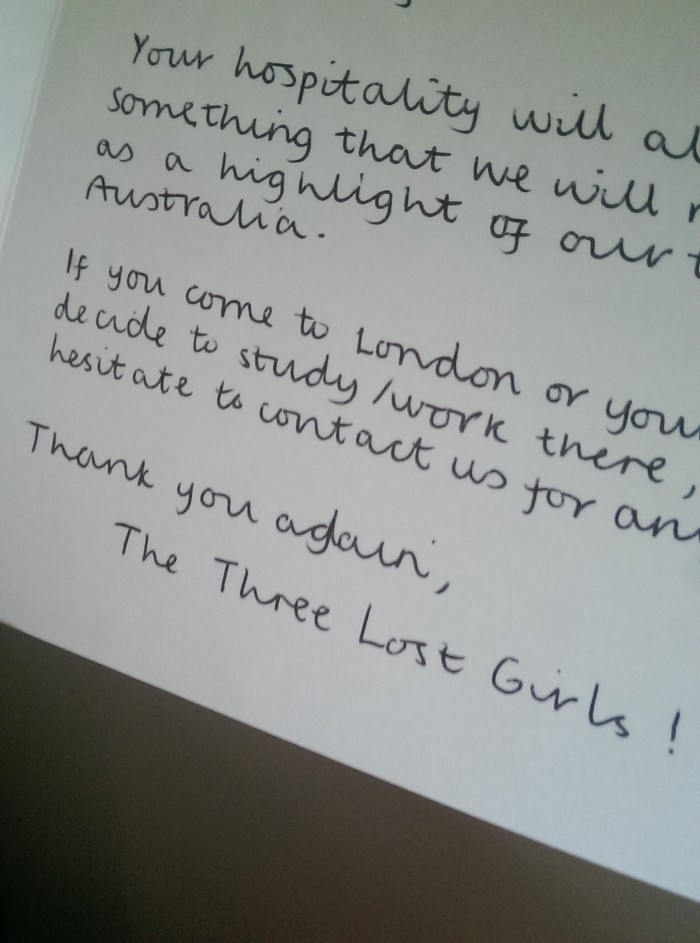 Your hospitality will al
something that we will r
as a highlight of our t
Australia.
If you come to London or you
decide to study/work there,
hesitate to contact us for an
Thank you again,
The Three Lost Girls!